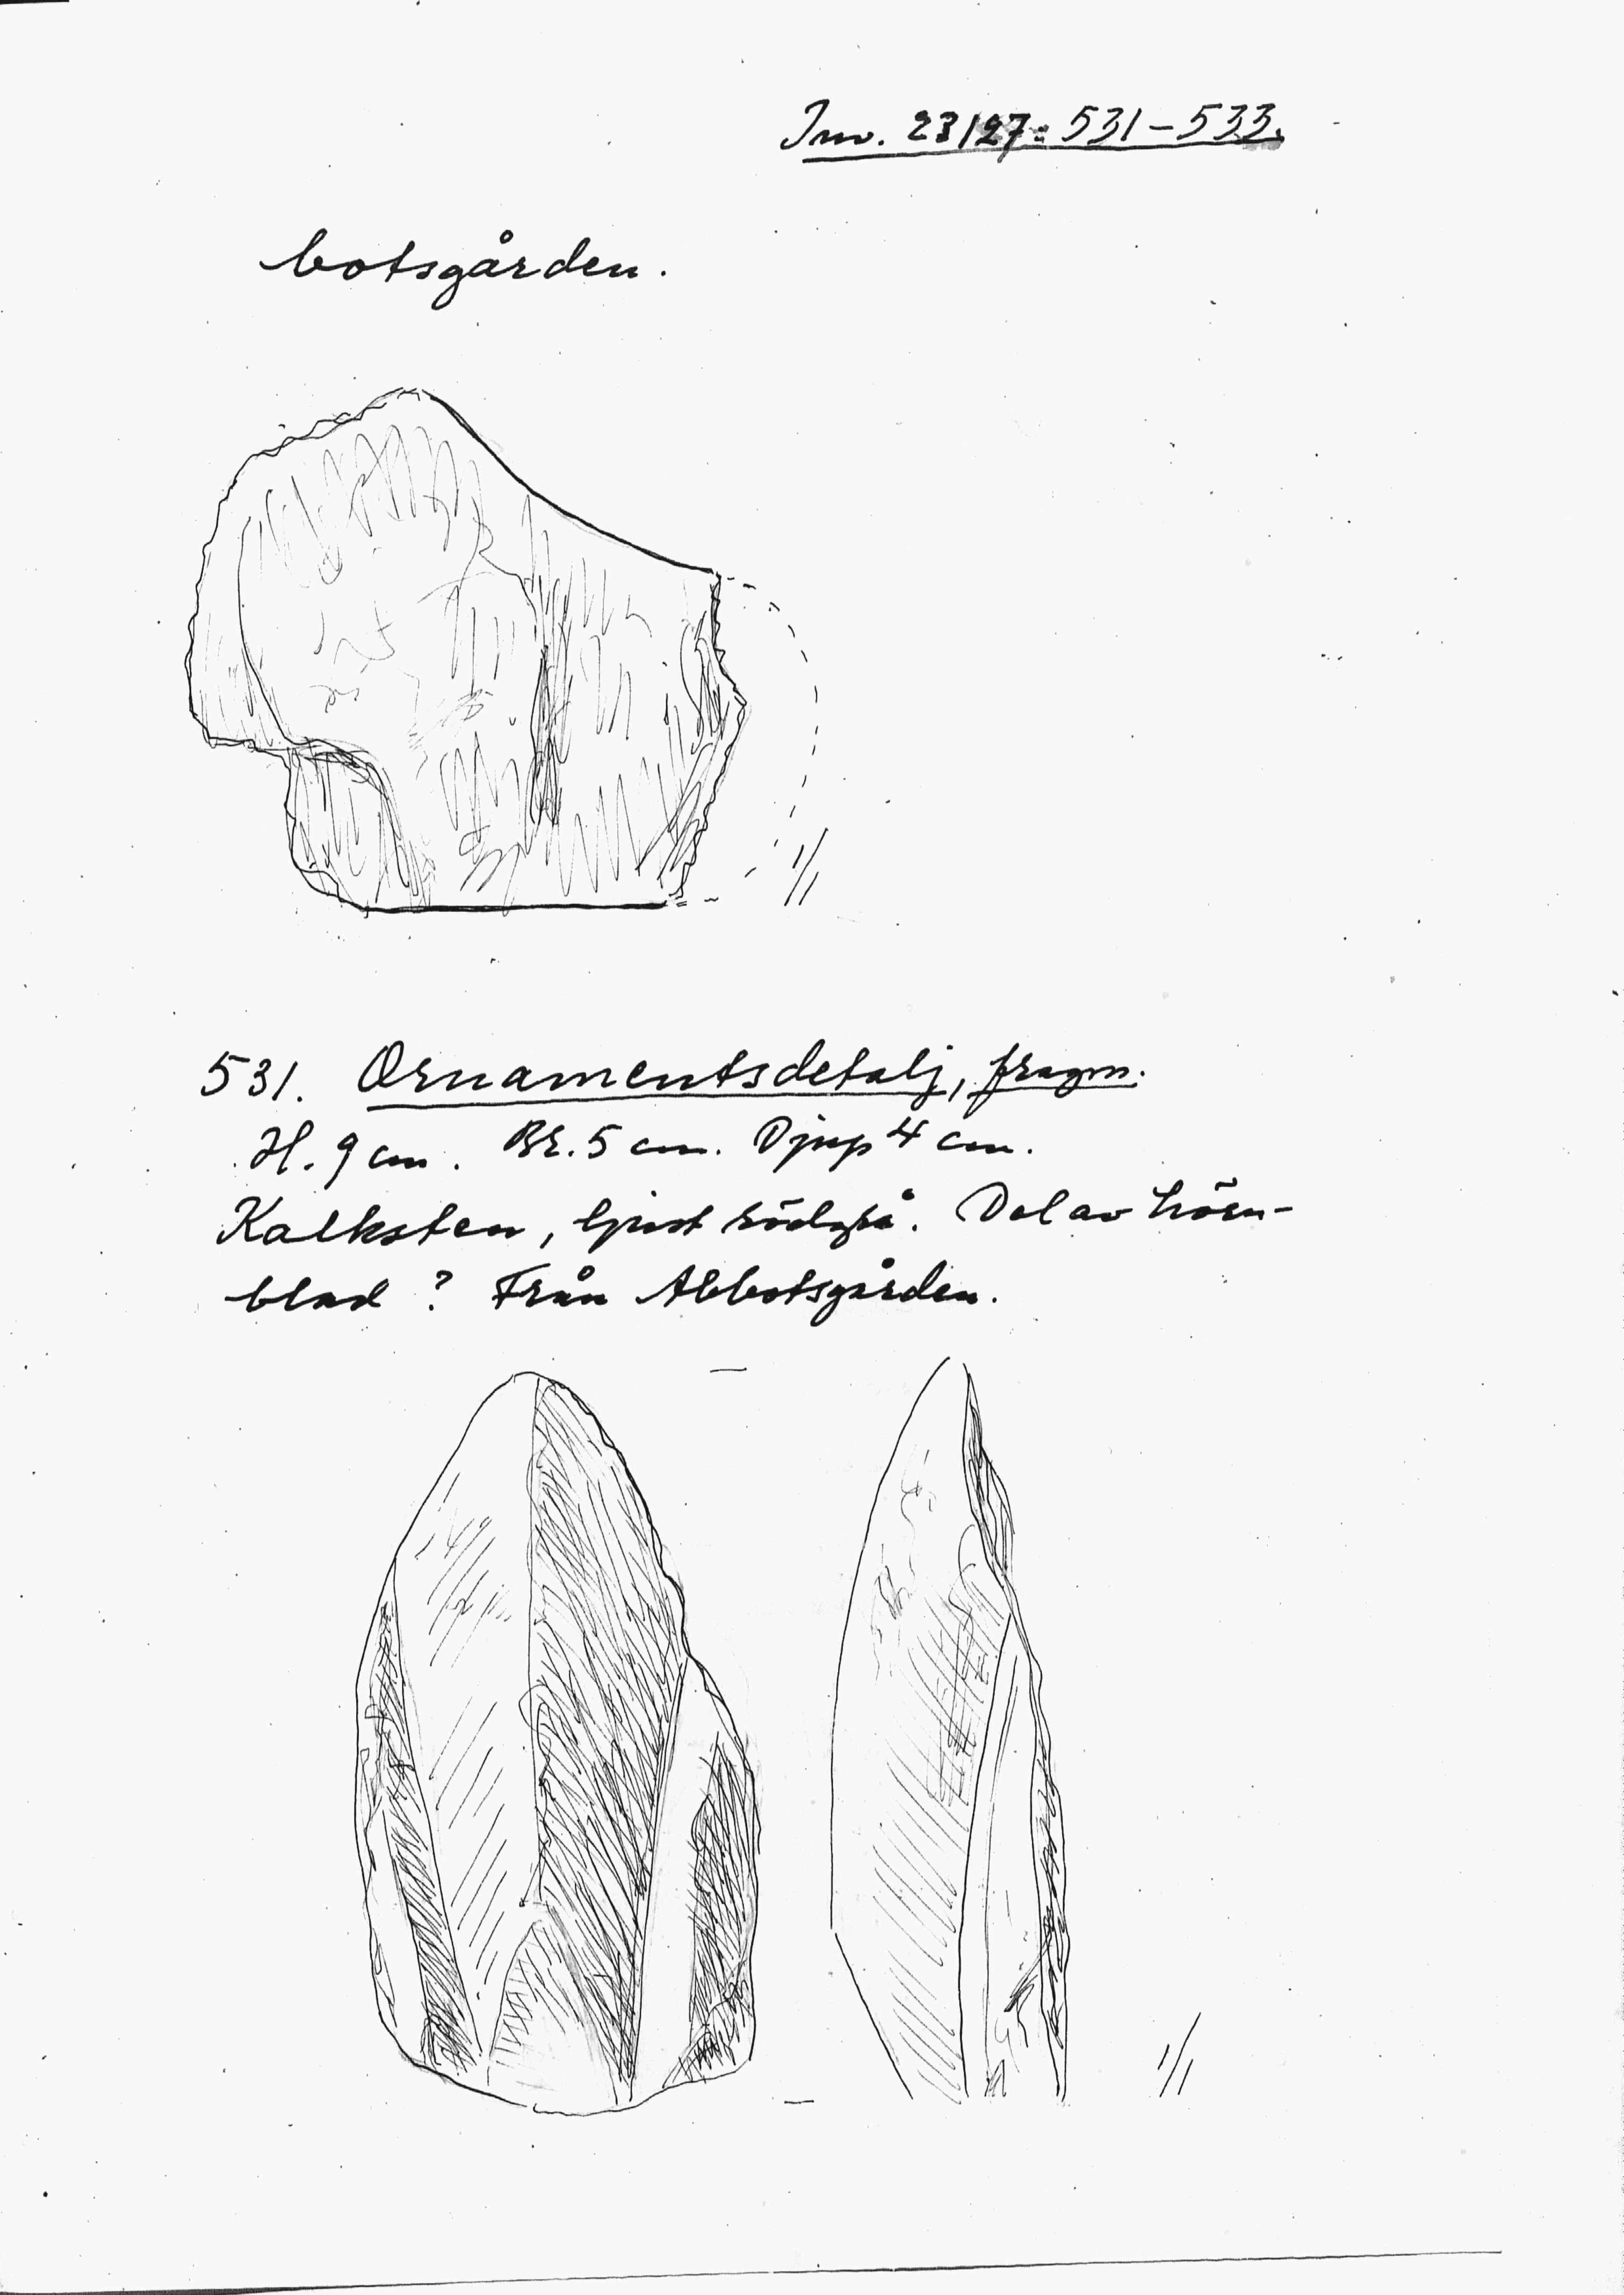 Inv. 23127:531-533.
botsgården.
1/1
531. Ornamentsdetalj, fragm.
H. 9 cm. Br. 5 cm. Djup 4 cm.
Kalksten, ljust rödgrå. Del av hörn-
blad? Från Abbotsgården.
1/1